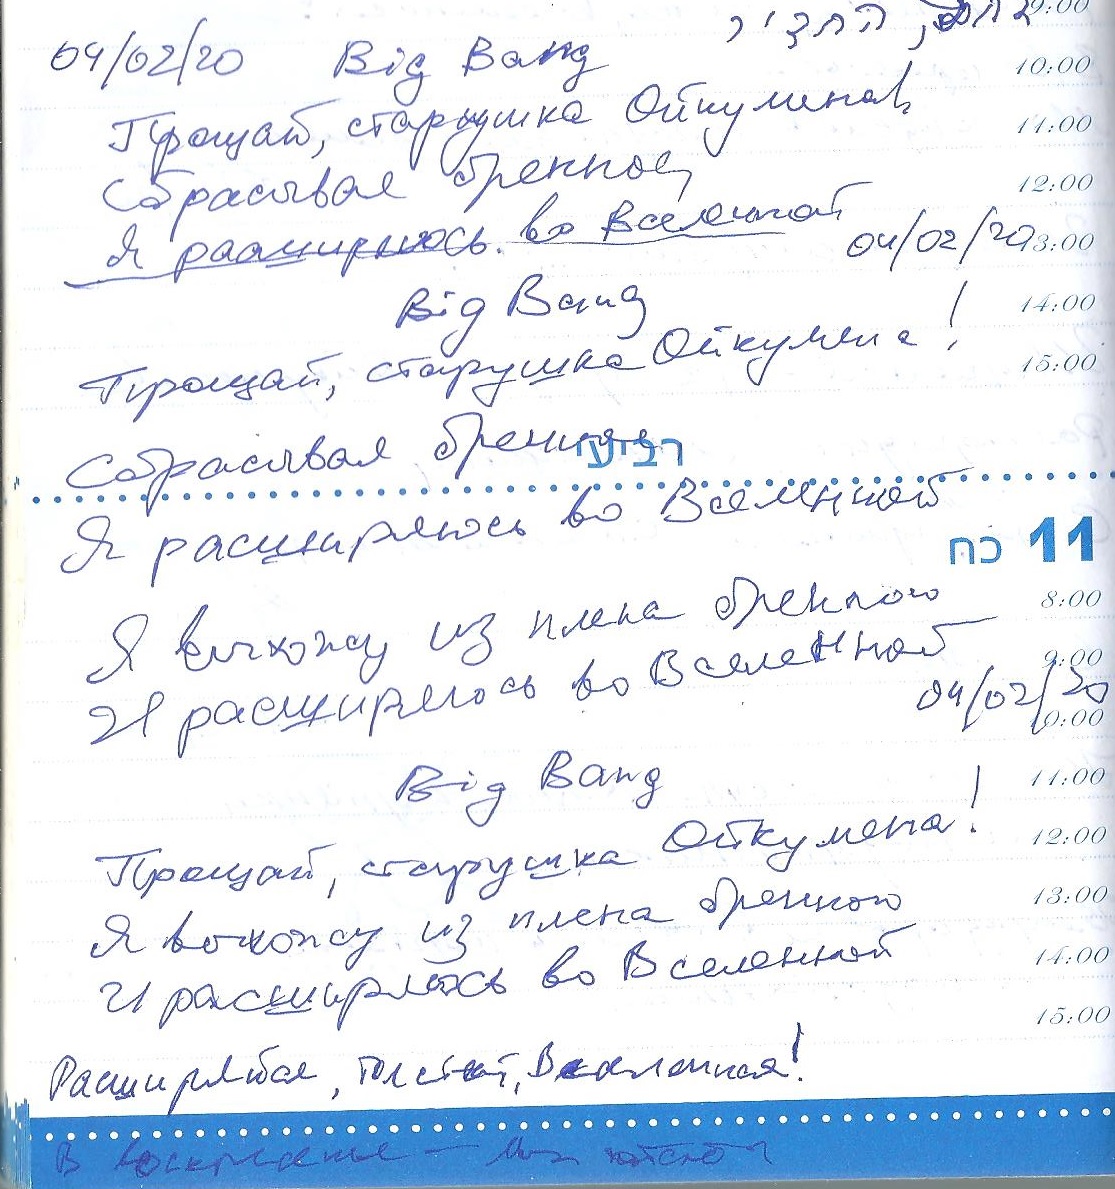 9:00
04/02/20 Big Bang
10:00
Прощай, старушка Ойкумена,
11:00
Сбрасывая бренное,
12:00
Я расширяюсь во Вселенной
04/02/20
13:00
Big Bang
14:00
Прощай, старушка Ойкумена!
15:00
Сбрасывая бренное
רביעי
Я расширяюсь во Вселенной
כח 11
Я выхожу из плена бренного
8:00
И расширяюсь во Вселенной
9:00
04/02/20
10:00
Big Bang
11:00
Прощай, старушка Ойкумена!
12:00
Я выхожу из плена бренного
13:00
И расширяюсь во Вселенной
14:00
15:00
Расширяйся, толстей, Вселенная!
В воскресенье —